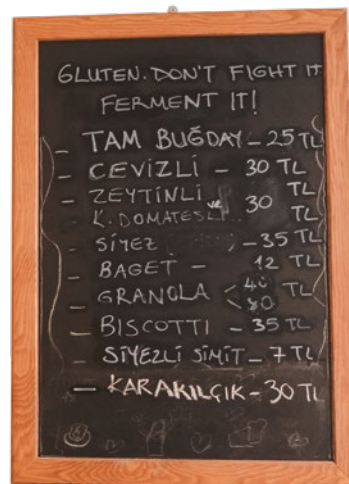 GLUTEN. DON'T FIGHT IT
FERMENT IT!
- TAM BUĞDAY - 25 TL
- CEVİZLİ - 30 TL
- ZEYTİNLİ ve TL
K. DOMATESLİ... 30 TL
- SİYEZ - 35 TL
- BAGET - 12 TL
- GRANOLA < 40 TL
<
- BISCOTTI - 35 TL
- SİYEZLİ SİMİT - 7 TL
- KARAKILÇIK - 30 TL